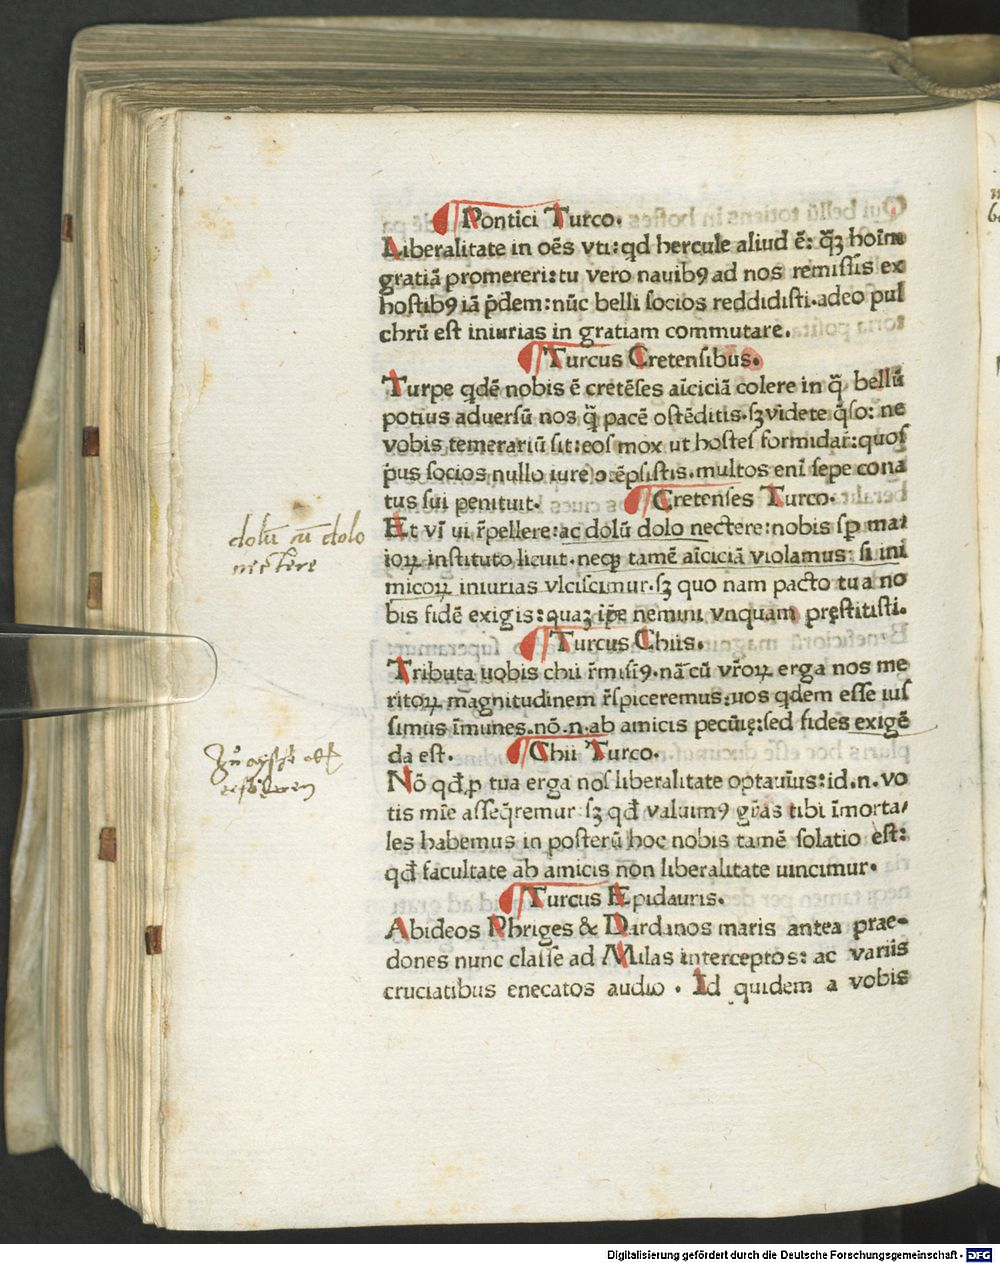 Pontici Turco.
Liberalitate in oẽs vti: qđ hercule aliud ē: q̃ꝫ hoim̃
gratiā promereri: tu vero nauibꝰ ad nos remissis ex
hostibꝰ iā p̃dem: nūc belli socios reddidisti. adeo pul
chrū est iniurias in gratiam commutare.
Turcus Cretensibus.
Turpe qdē nobis ē cretēses aīciciā colere in q̃ bellū
potius aduersū nos q̃ꝫ pacē ostēditis. sꝫ videte q̃so: ne
vobis temerariū sit: eos mox ut hostes formidar̃: quos
p̃us socios nullo iure ɔ̃cēpsistis. multos enī sepe cona
tus sui penituit.
Cretenses Turco.
Et vī ui r̃pellere: ac dolū dolo nectere: nobis sꝑ mai
ioꝝ instituto licuit. neqꝫ tamē aīciciā violamus: si ini
micoꝝ iniurias vlciscimur. sꝫ quo nam pacto tu a no
bis fidē exigis: quaꝫ ip̃e nemini vnquam pręstitisti.
dolū cū dolo
nectere
Turcus Chiis.
Tributa uobis chii r̃misimꝰ. nā cū vr̃oꝝ erga nos me
ritoꝝ magnitudinem r̃spiceremus: uos qdem esse ius
simus īmunes. nō. n. ab amicis pecūię: sed fides exigē
da est.
Chii Turco.
Nō qđ ꝓ tua erga nos liberalitate optauimus: id. n. vo
tis mīe asseq̃remur sꝫ qđ valuimꝰ gr̃as tibi īmorta/
les habemus in posterū hoc nobis tamē solatio est:
qđ facultate ab amicis non liberalitate uincimur.
Turcus Epidauris.
Abideos Phriges & Dardanos maris antea prae-
dones nunc classe ad Milas interceptos: ac variis
cruciatibus enecatos audio. Id quidem a vobis
Digitalisierung gefördert durch die Deutsche Forschungsgemeinschaft - DFG